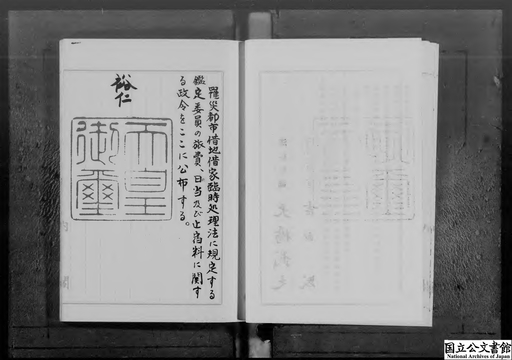 罹災都市借地借家臨時処理法に規定する
鑑定委員の旅費、日当及び止宿料に関す
る政令をここに公布する。
裕仁
天皇
御璽
国立公文書館
National Archives of Japan